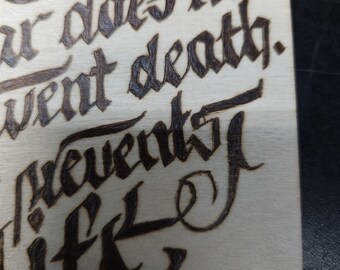 ar does n
vent death.
prevents
life.